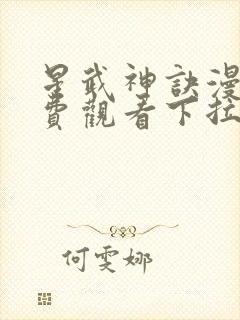 星武神訣漫
費觀看下拉
何雯娜